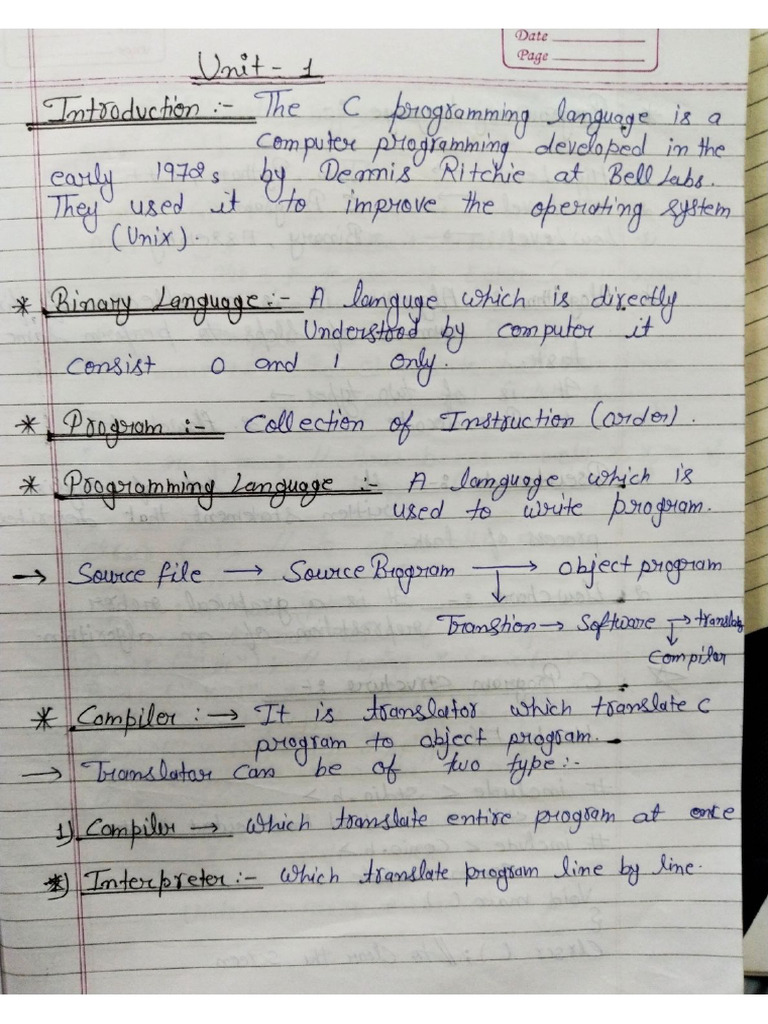 Date
Page
Unit - 1
Introduction :- The C programming language is a
computer programming developed in the
early 1970s by Dennis Ritchie at Bell Labs.
They used it to improve the operating system
(Unix).
* Binary Language :- A languge which is directly
Understood by computer it
consist 0 and 1 only.
* Program :- Collection of Instruction (order).
* Programming Language :- A language which is
used to write program.
→ Source file → Source Program → object program
Transtion → Software → translator
Compiler
* Compiler : → It is translator which translate C
program to object program.
→ Translator can be of two type :-
1) Compiler → which translate entire program at once
*) Interpreter :- which translate program line by line.